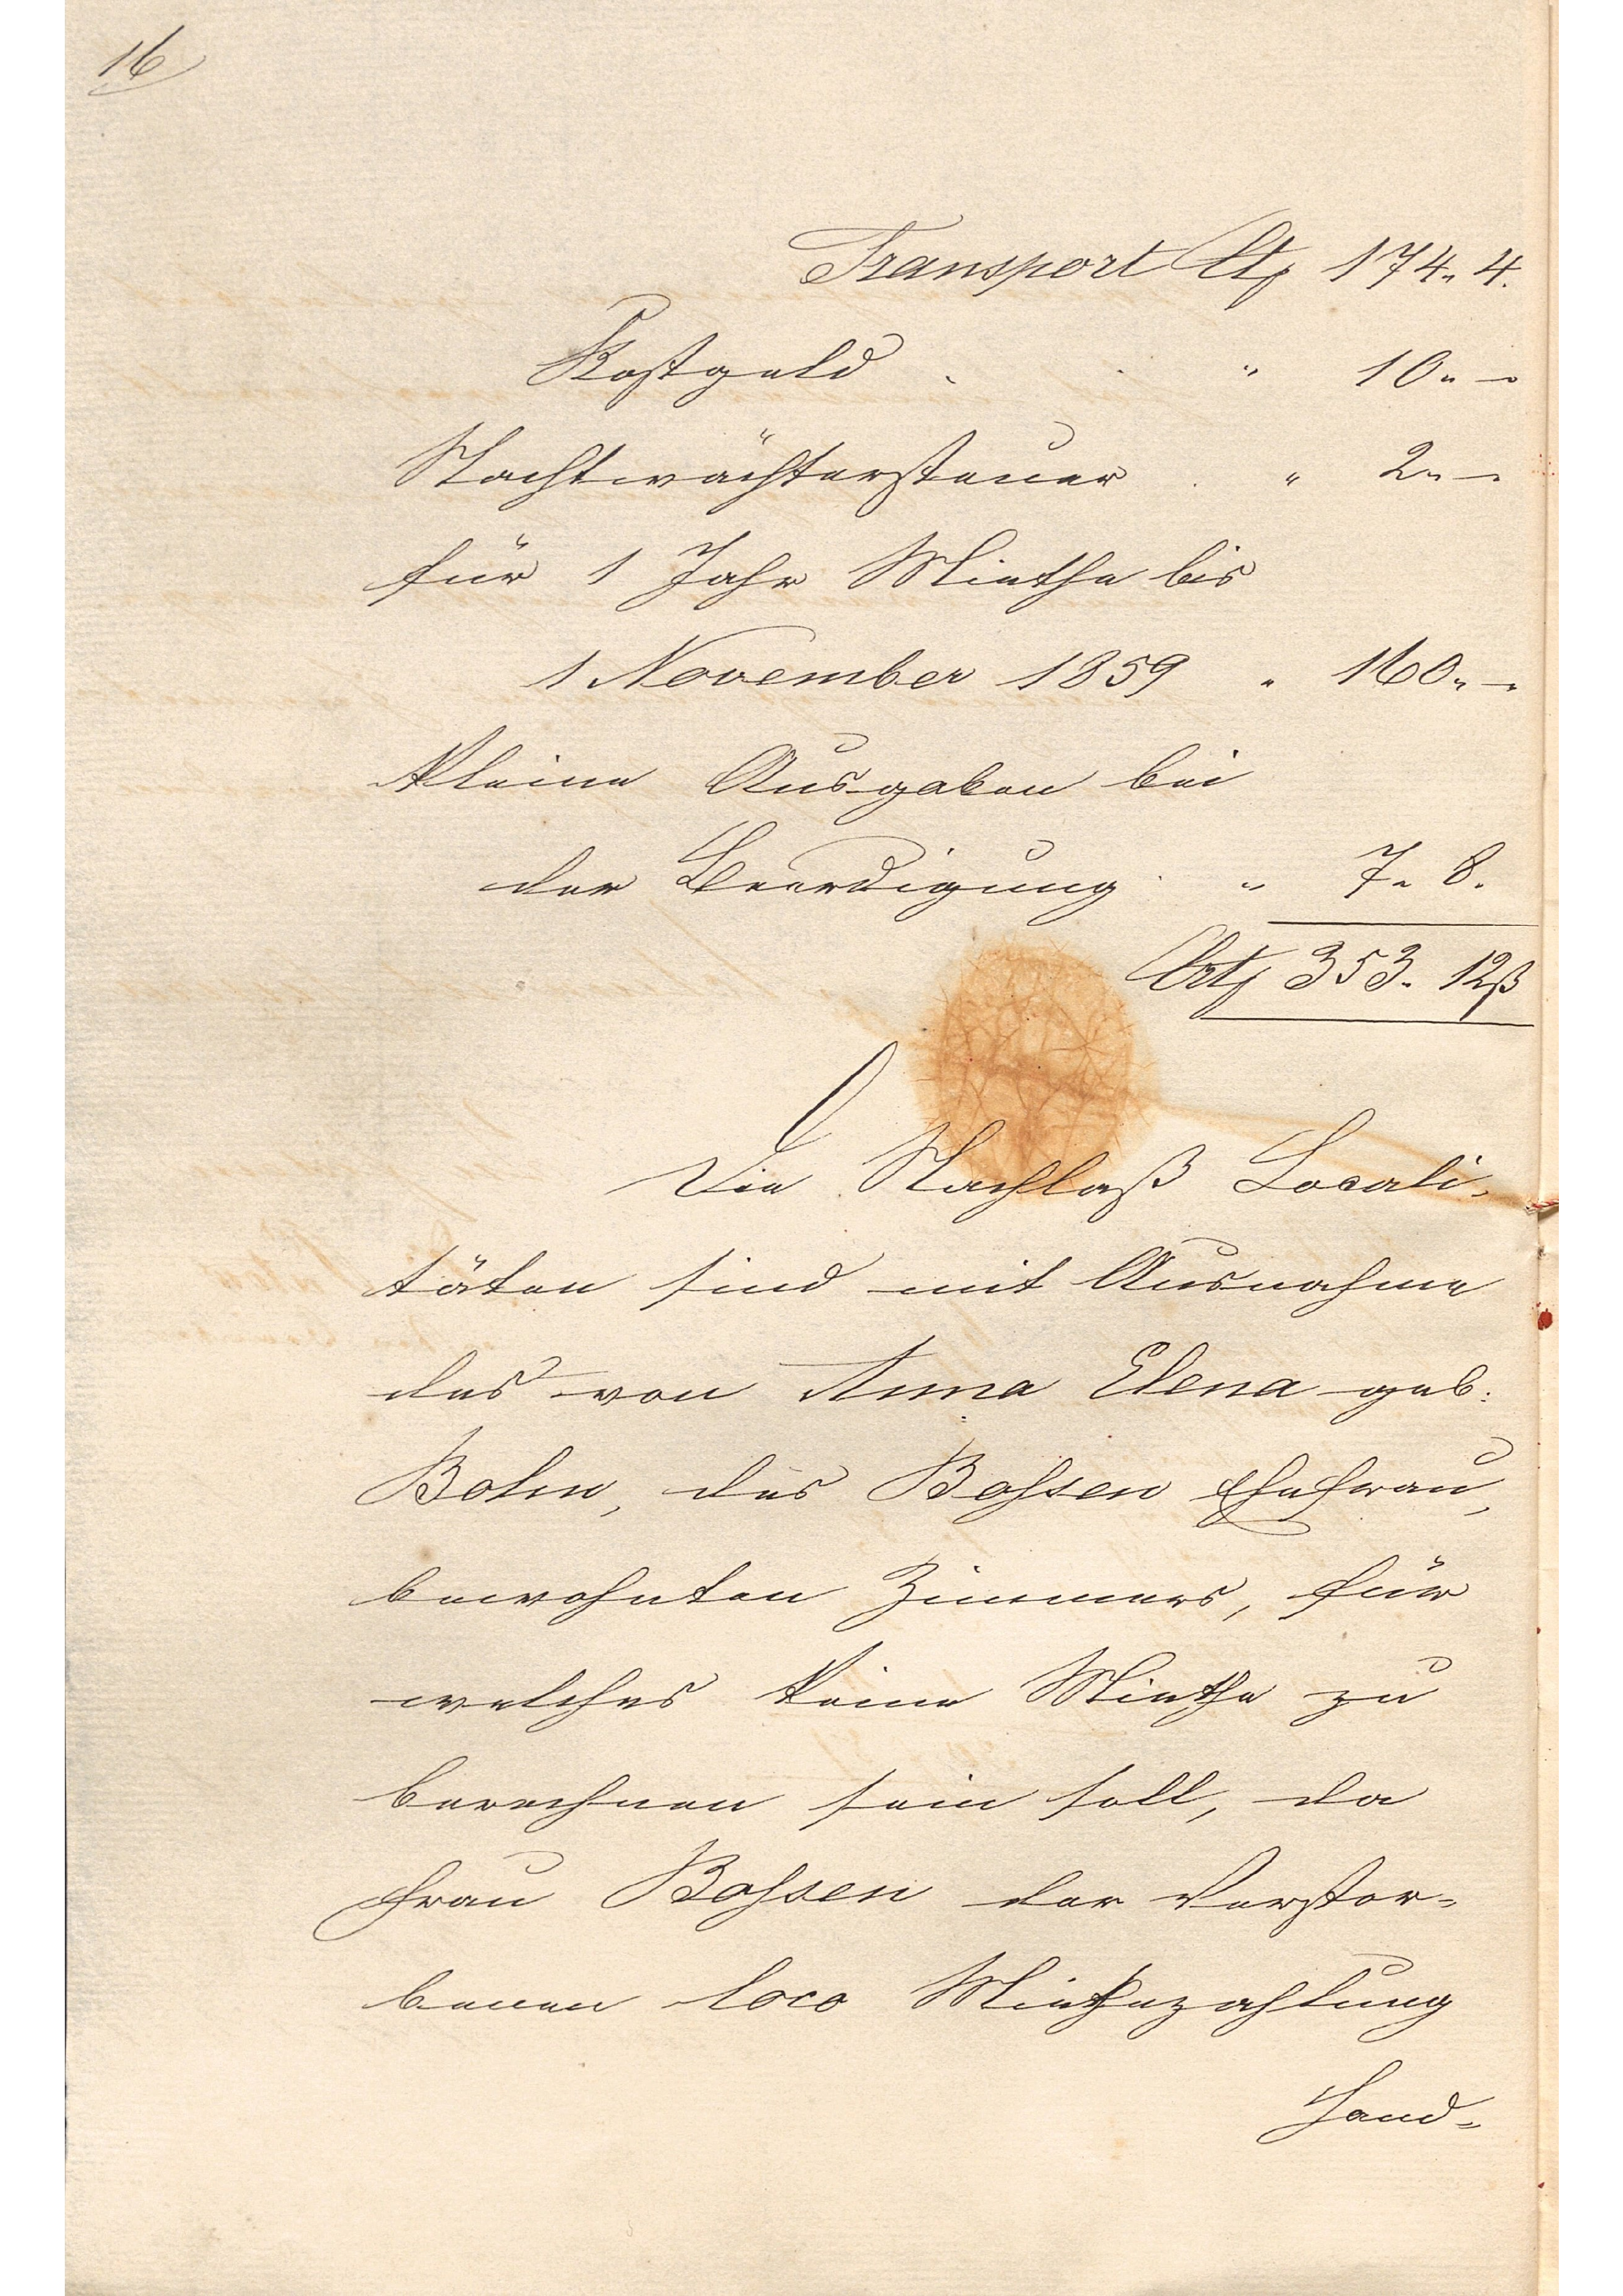 16
Transport Ct 174 „ 4.
Kostgeld . . „ 10 „ –
Nachtwächtersteuer . „ 2 „ –
für 1 Jahr Miethe bis
1 November 1859 „ 160 „ –
Kleine Ausgaben bei
der Beerdigung . „ 7 „ 8.
353 „ 12ß
Die Nachlaß Locali-
täten sind mit Ausnahme
des von Anna Elena geb.
Bohn, des Bohsen Ehefrau,
bewohnten Zimmers, für
welches keine Miethe zu
berechnen sein soll, da
Frau Bohsen der Verstor-
benen loco Miethezahlung
Hand-